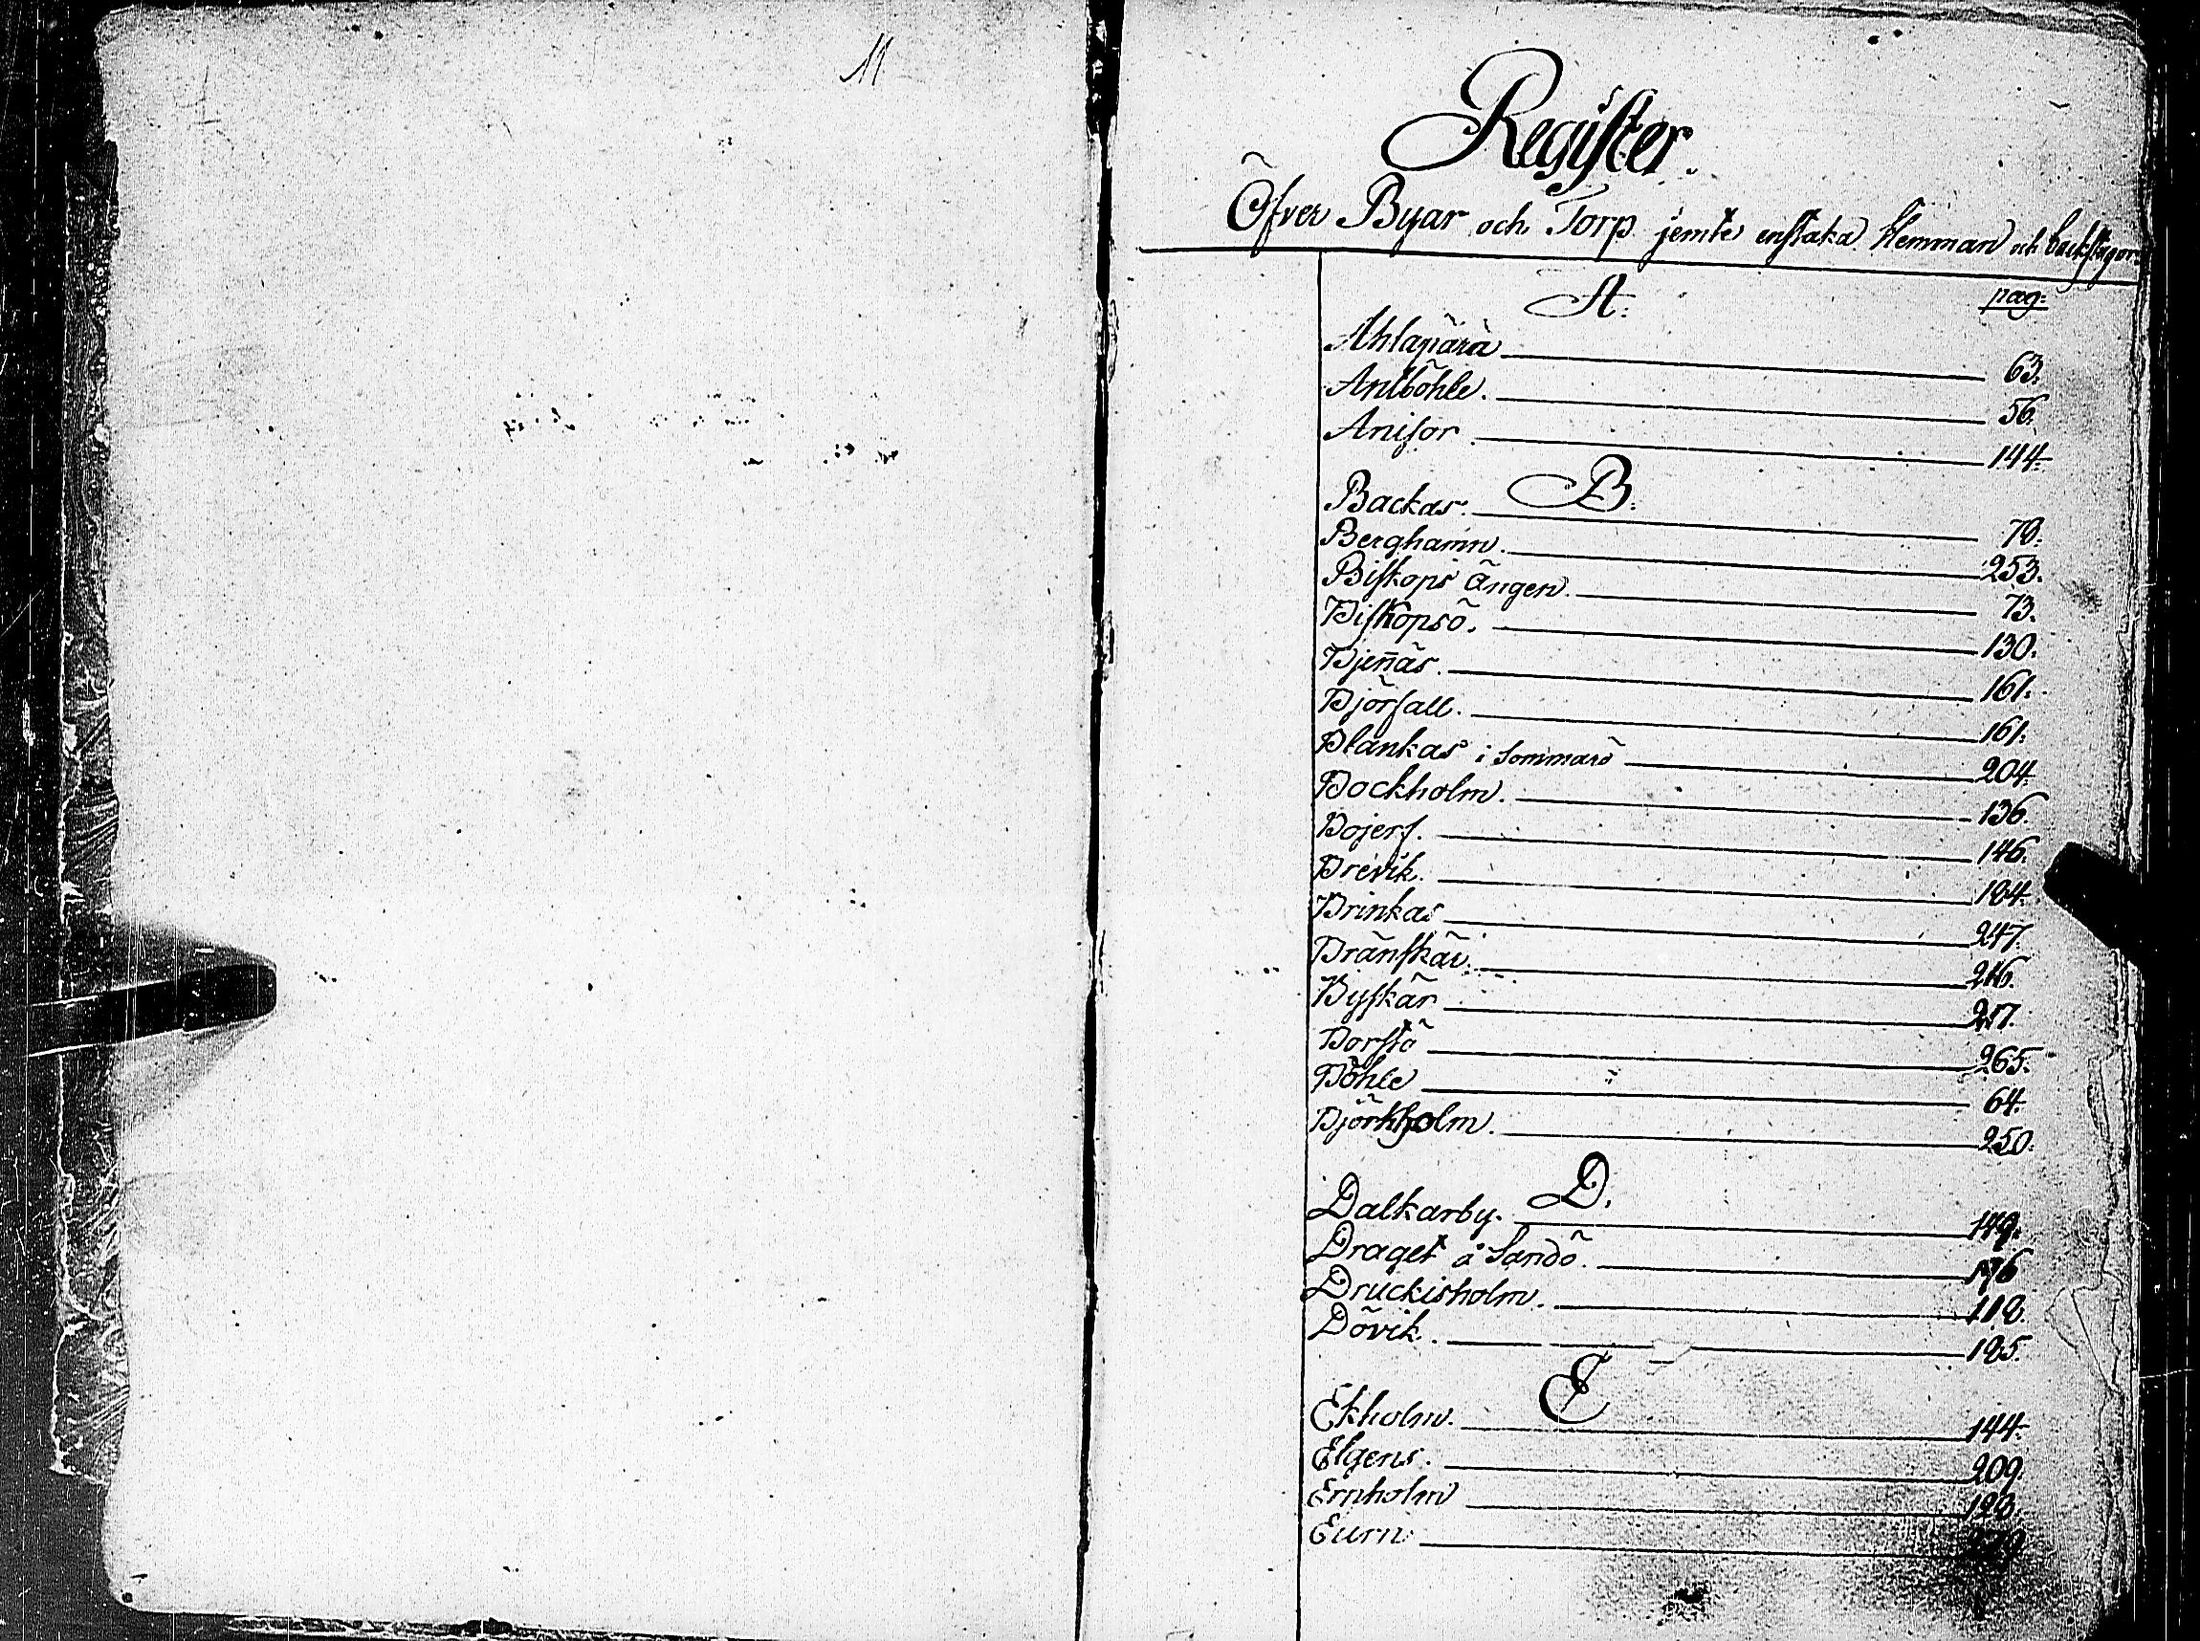 Register.
Öfver Byar och Torp jemte enstaka Hemman och backstugor.
pag:
A:
Ahlapärä 63.
Anlböhle. 56.
Anisor. 144.
B:
Backas.
Berghamn. 253.
Biskops ängen. 73.
Biskopsö. 130.
Bjen̄äs. 161.
Björsall. 161.
Blankas i Sommarö 204.
Bockholm. 136.
Bojers. 146.
Brevik. 184.
Brinkas 247.
Bränskär. 216.
Byskär 217.
Borstö 265.
Böhle 64.
Björkholm. 250.
D.
Dalkarby. 149.
Draget å Sandö. 176
Druckisholm. 118.
Dövik. 185.
E
Ekholm. 144.
Elgens. 209.
Ernholm 128.
Eurn